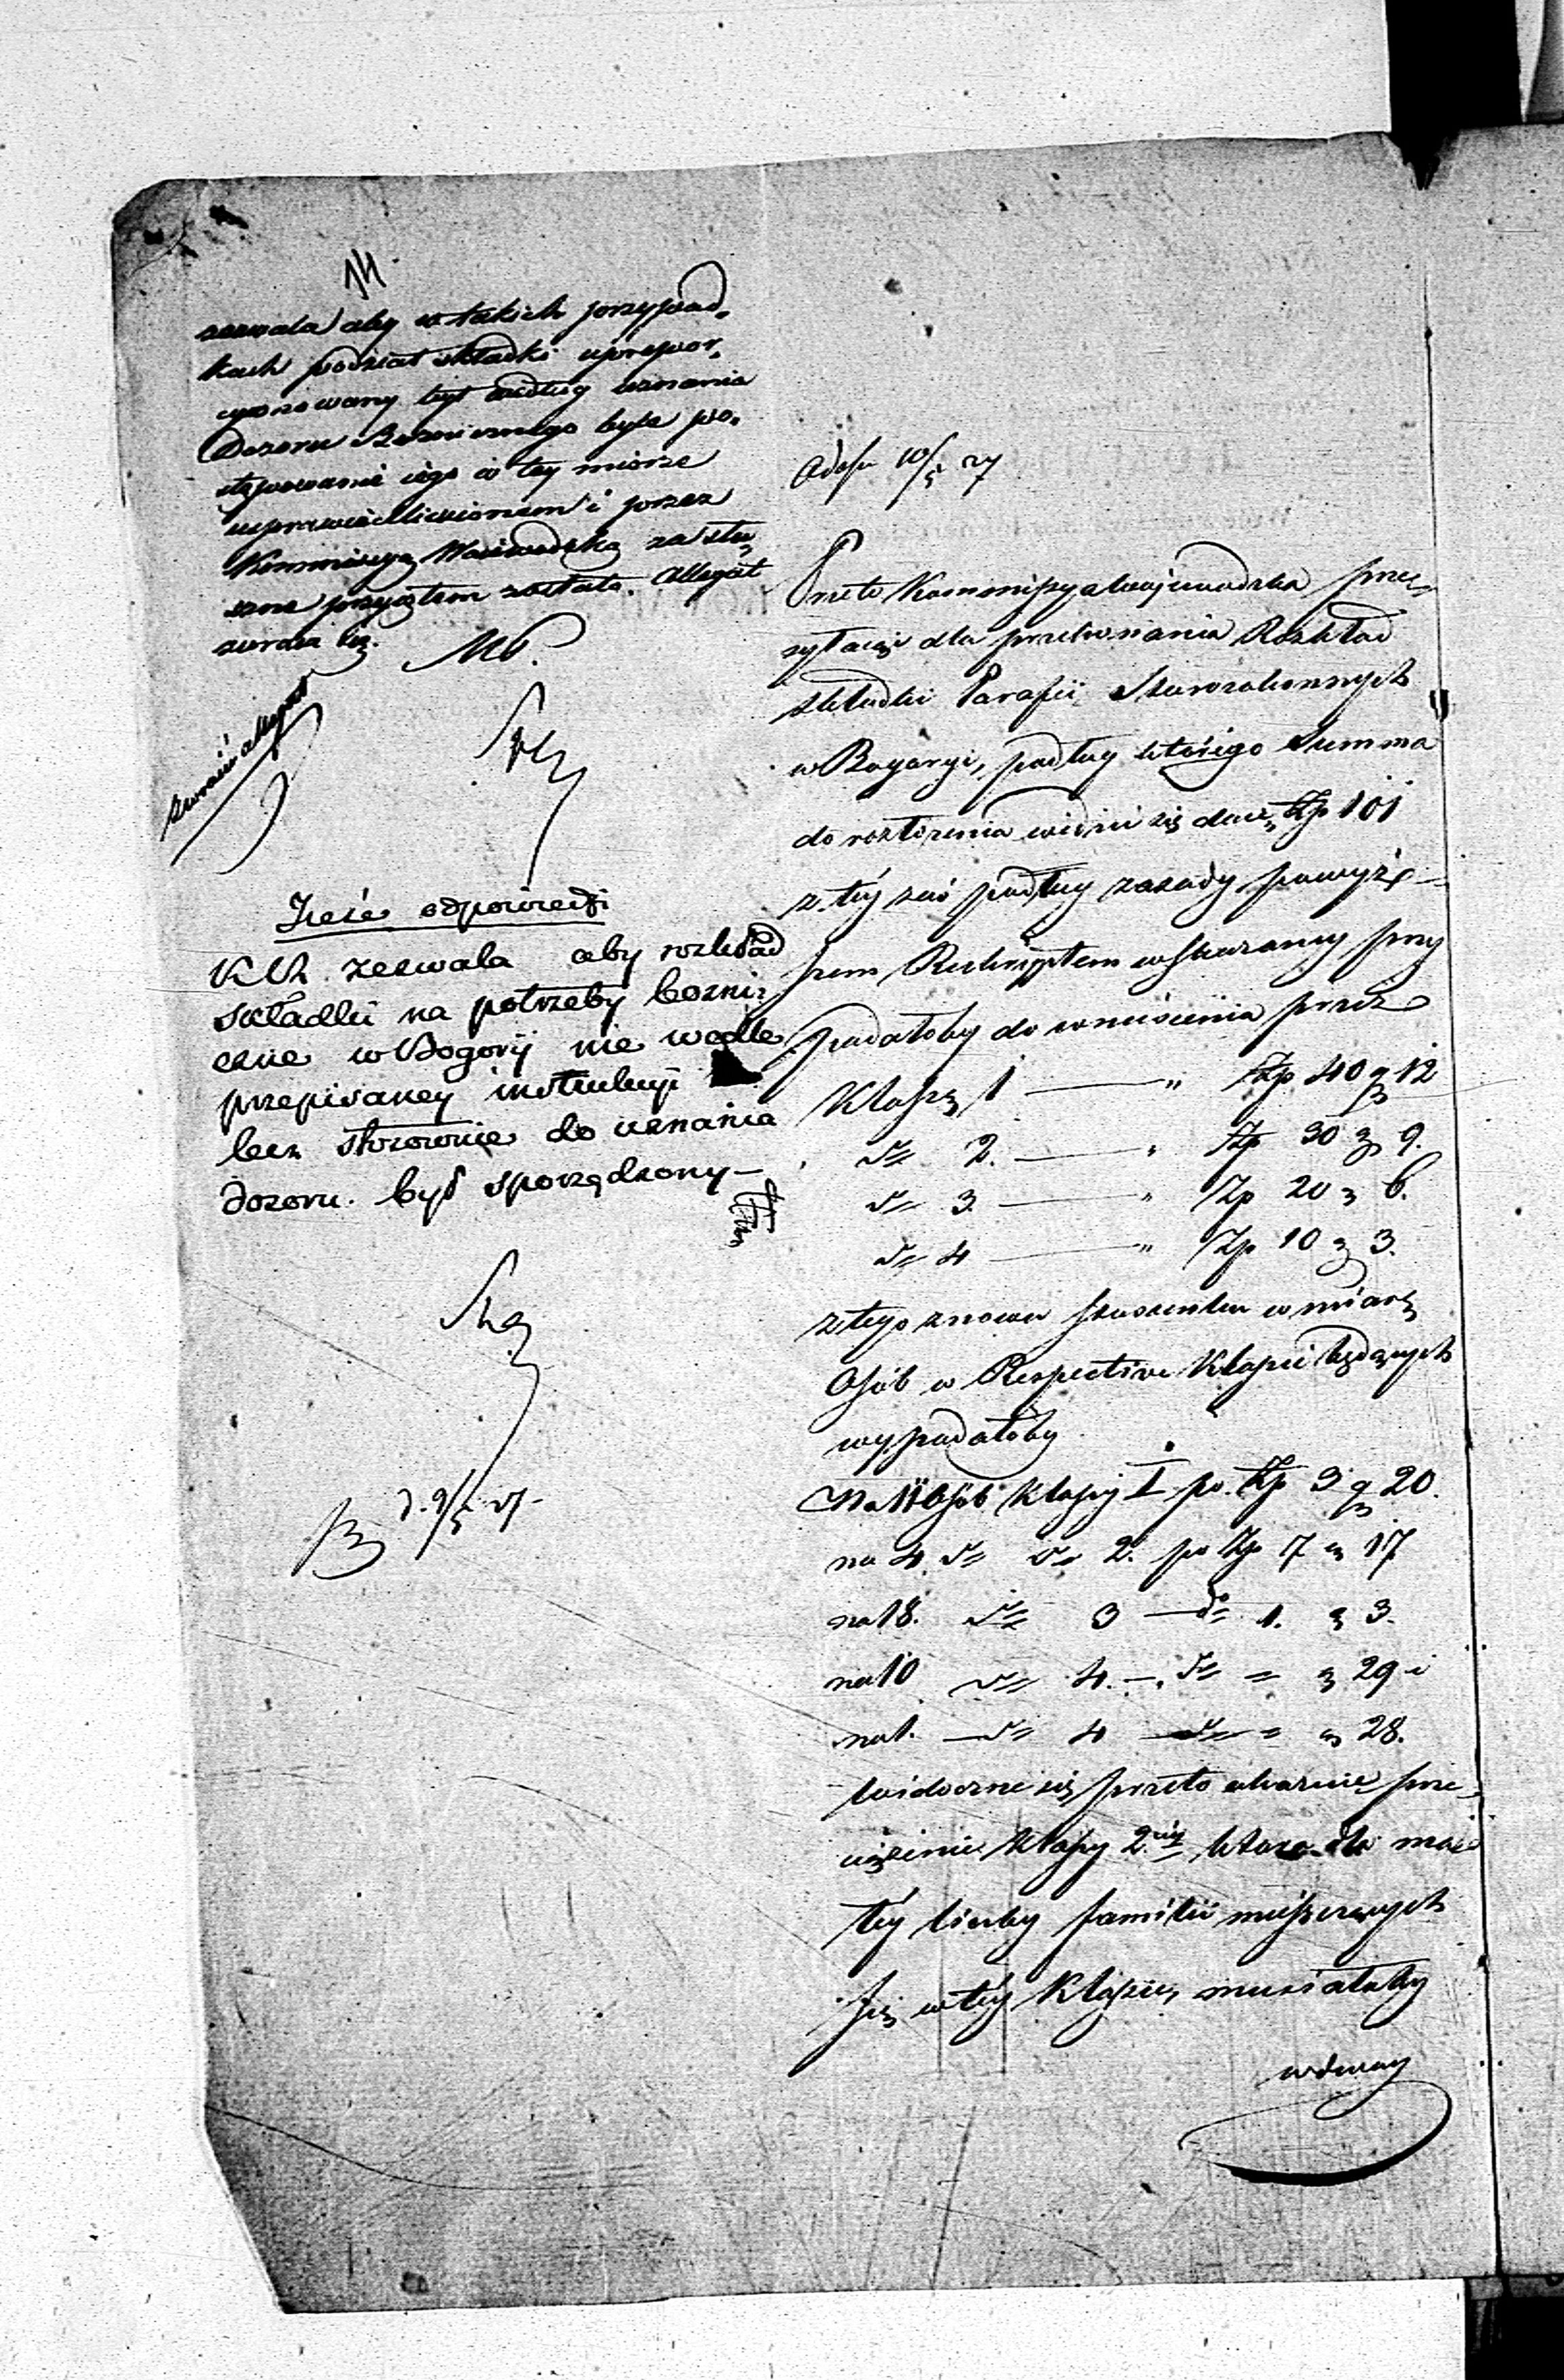 14
zezwala aby w takich przypad„
kach podział składki upropor„
cyonowany był według uznania
Dozoru Bożnicznego było po„
stępowanie iego w tey mierze
usprawiedliwionem i przez
Kommissyą Woiewodzką za słu„
szne przyjętem zostało. Allegat
zwraca się.
zwrócić allegat
Treść odpowiedzi
KW. zezwala aby rozkład
składki na potrzeby bożni„
czne w Bogoryi nie wedle
przepisaney instrukcyi
lecz stosownie do uznania
Dozoru był sporządzony —
d. 9/5 27
10/5 27
Kommissya Wojewodzka prze„
syłając dla przekonania Rozkład
składki Parafii Starozakonnych
w Bogoryi, podług którego Summa
do rozłożenia widzieć się daie, Zp 101
z téy zaś podług zasady powyż„
szem Reskryptem wskazaney przy„
padałoby do wniesienia przez
Klassę 1 — „ Zp 40 g 12
do 2. — „ Zp 30 g 9.
do 3. — „ Zp 20 g 6.
do 4 — „ Zp 10 g 3.
z tego znowu stosunku w miarę
Osób w Respective Klassie będących
wypadałoby
Na 11 Osób Klassy I po Zp 3 g 20.
na 4 do do 2. po Zp 7 g 17
na 18. do 3 — do 1. g 3.
na 10 do 4. — do = g 29 i
na 1. — do 4 do = g 28.
widoczne iest przeto ukazuie prze„
ciążenie Klassy 2giéy która dla ma„
łéy liczby familii mieszczących
się w téy Klassie, musiałaby